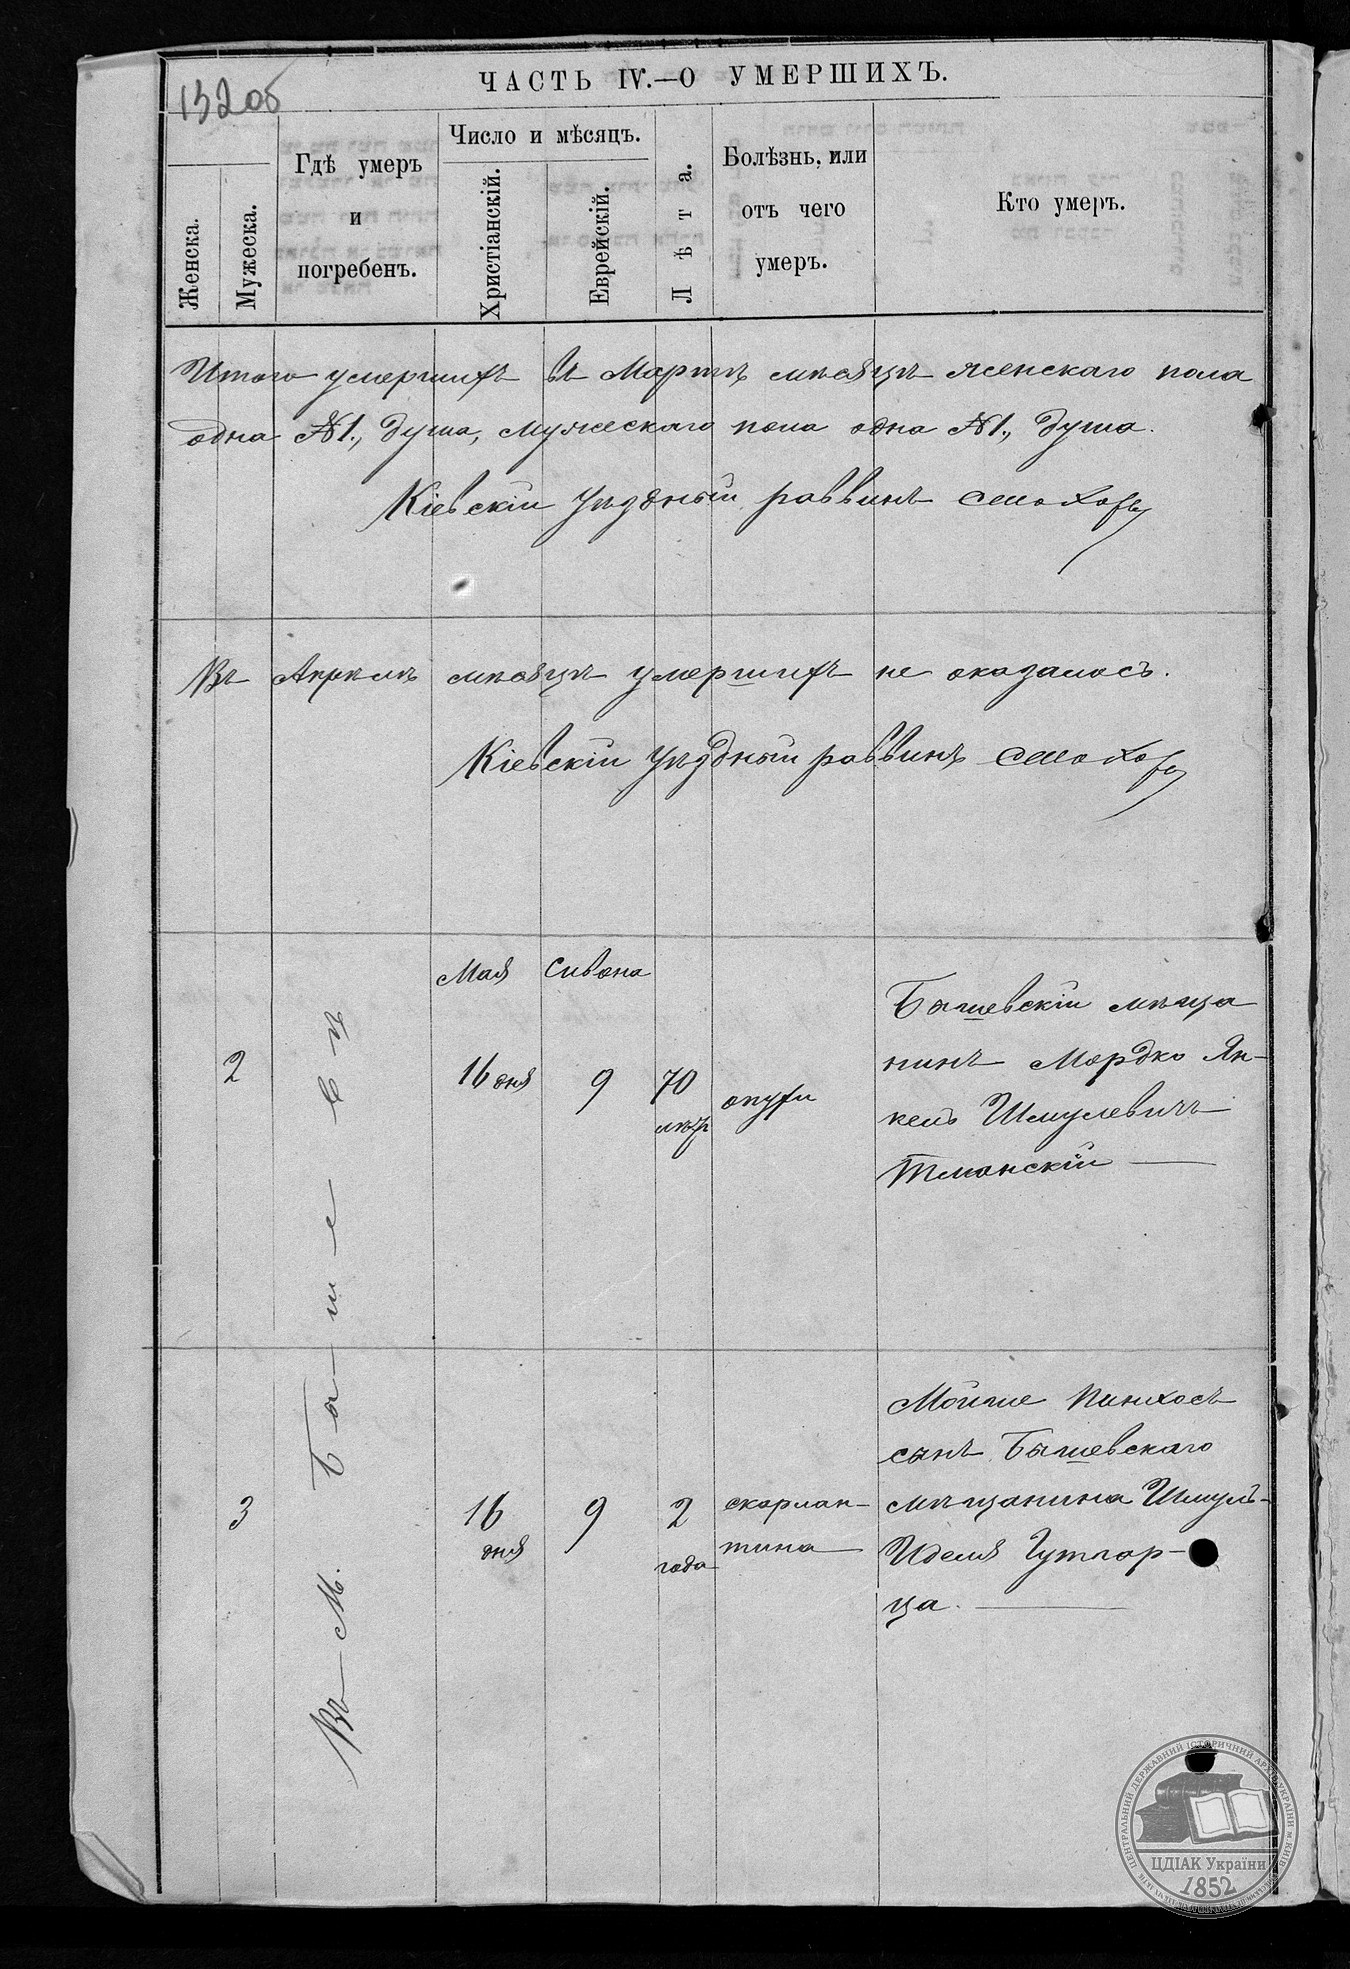 132об
ЧАСТЬ IV.—О УМЕРШИХЪ.
Женска.
Мужеска.
Гдѣ умеръ
и
погребенъ.
Число и мѣсяцъ.
Христіанскій.
Еврейскій.
Лѣта.
Болѣзнь, или
отъ чего
умеръ.
Кто умеръ.
Итого умершихъ въ Мартѣ мѣсяцѣ женскаго пола
одна №1., душа, мужескаго пола одна №1., душа.
Кіевскій уѣздный раввинъ
Въ Апрѣлѣ мѣсяцѣ умершихъ не оказалось.
Кіевскій уѣздный раввинъ
Въ М. Бышевѣ
Мая Сивона
2
16 дня
9
70
лѣтъ
опухи
Бышевскій мѣща
нинъ Мордко Ян-
кель Шмулевичъ
Тманскій
3
16
дня
9
2
года
скарлан-
тина
Мойше Пинхосъ
сынъ Бышевскаго
мѣщанина Шмуль-
Иделя Гутгар-
ца.
ЦЕНТРАЛЬНИЙ ДЕРЖАВНИЙ ІСТОРИЧНИЙ АРХІВ УКРАЇНИ м.КИЇВ
ЦДІАК України
1852